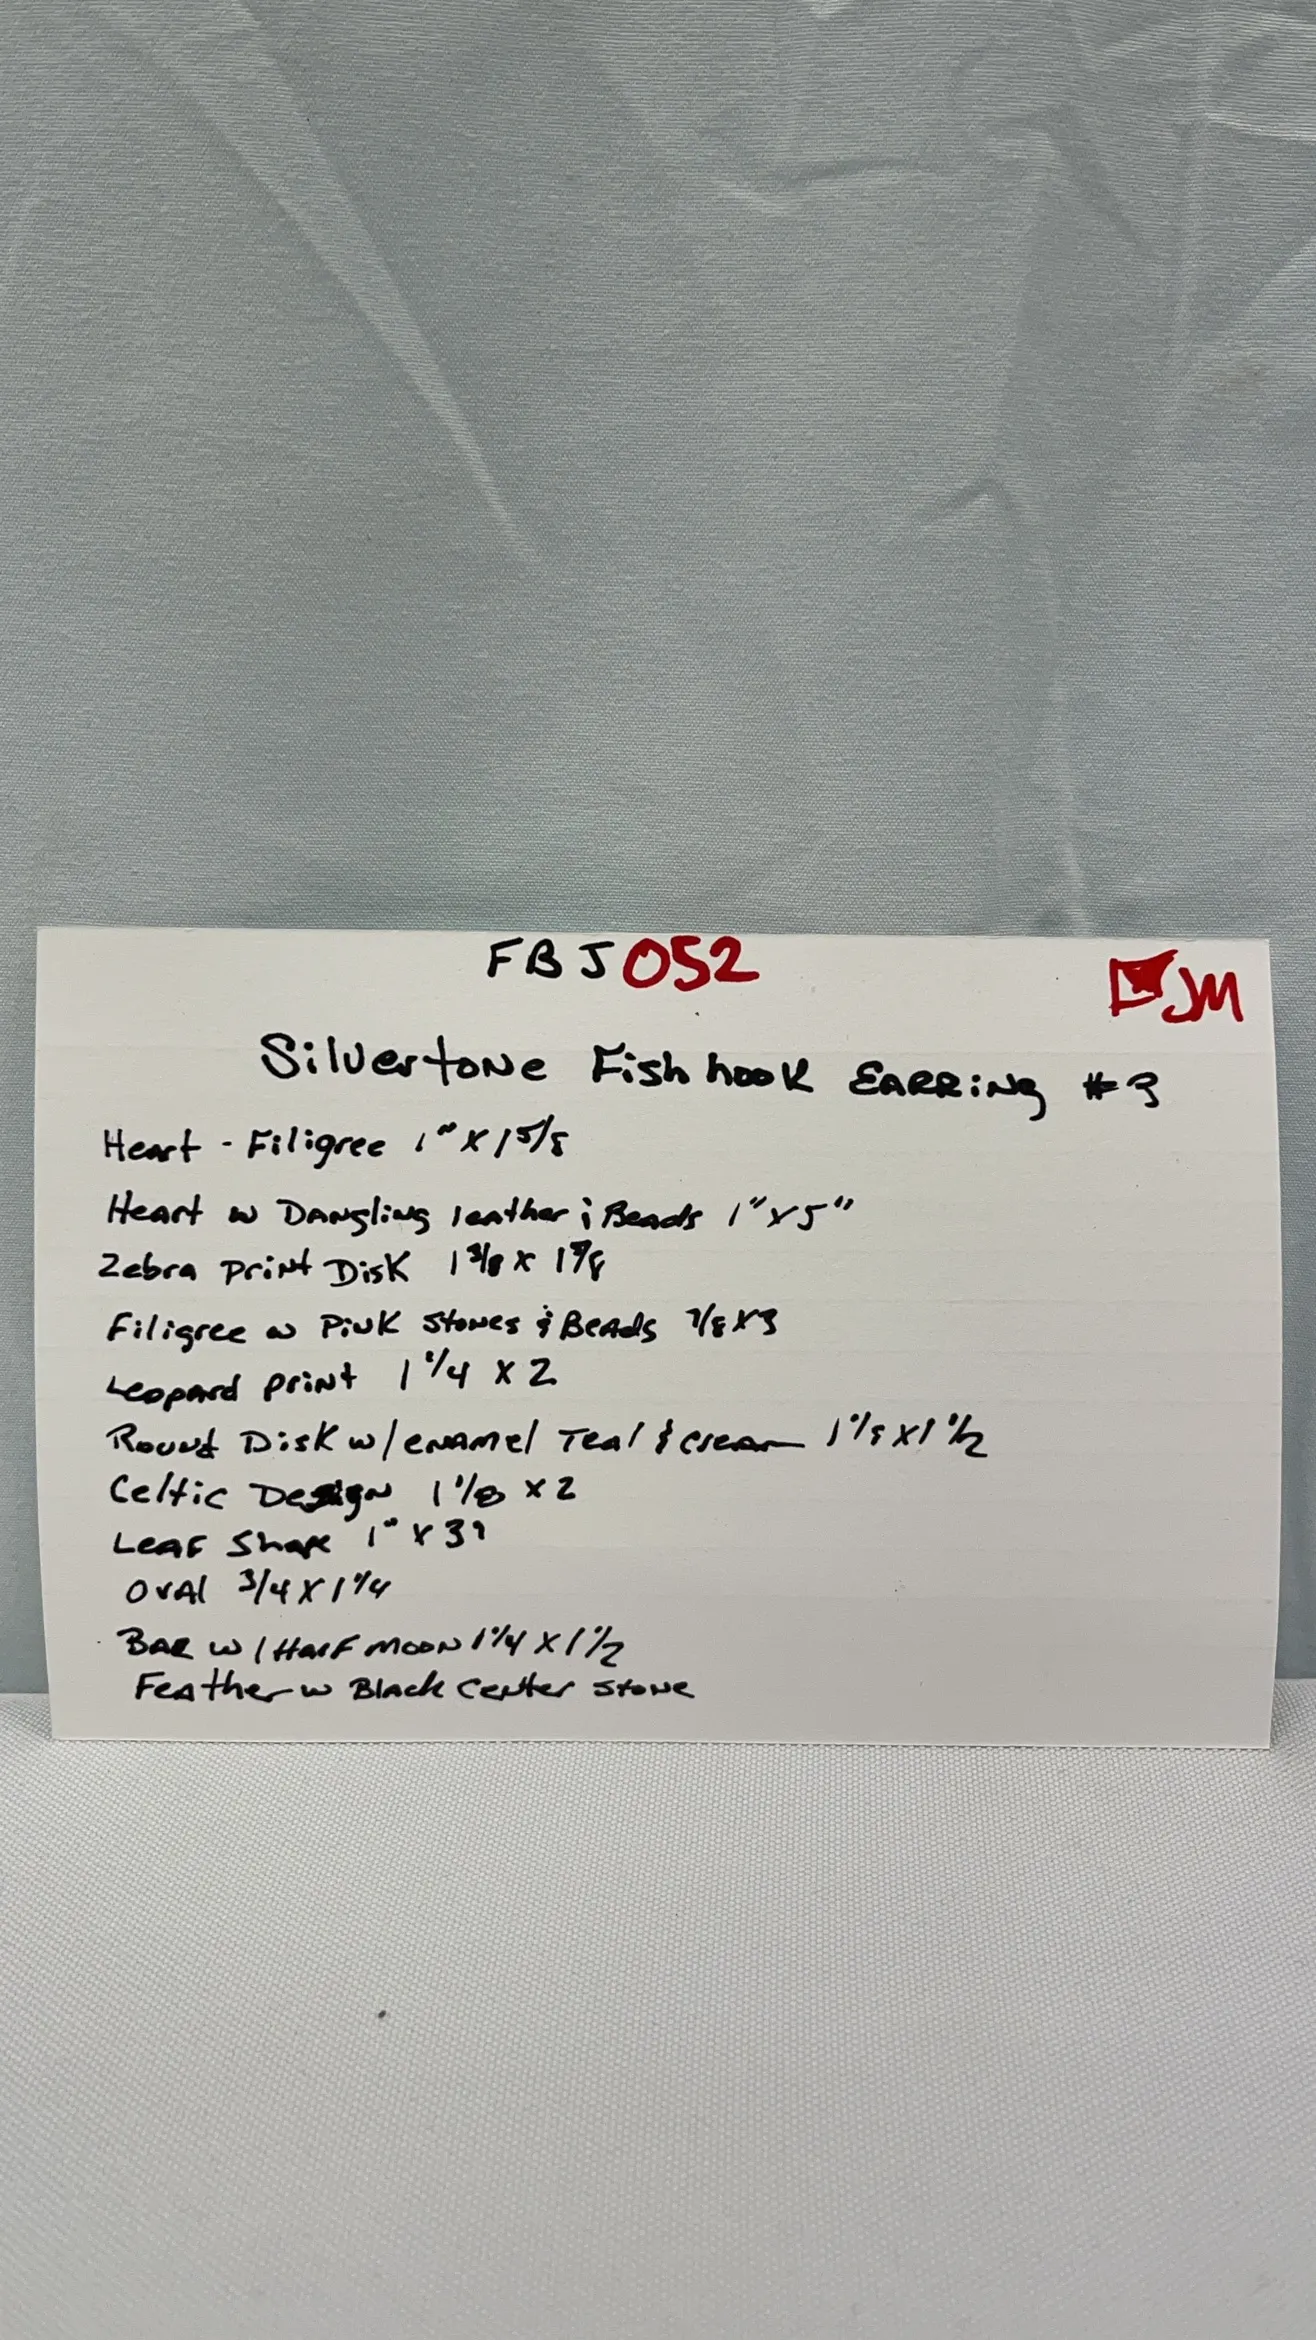 FBJ052
JM
Silvertone Fish hook EARRiNg #3
Heart - Filigree 1" X 1 5/8
Heart w Dangling leather & Beads 1" X 5"
Zebra print Disk 1 3/8 X 1 7/8
Filigree w Pink stones & Beads 7/8 X 3
Leopard print 1 1/4 X 2
Round Disk w/ enamel Teal & cream 1 1/8 X 1 1/2
Celtic Design 1 1/8 X 2
Leaf Shape 1" X 3"
Oval 3/4 X 1 1/4
BAR w/ Half moon 1 1/4 X 1 1/2
Feather w Black Center stone